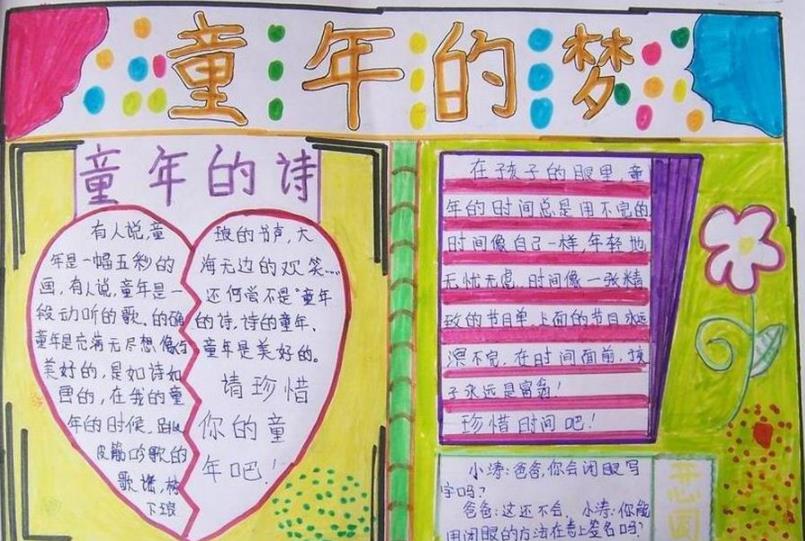 童年的梦
童年的诗
有人说,童
年是一幅五秒的
画,有人说,童年是一
段动听的歌。的确
童年是充满无尽想像与
美好的,是如诗如
画的,在我的童
年的时候,跳
皮筋吟歌的
歌谣,树
下琅
琅的书声,大
海无边的欢笑……
还何尝不是“童年
的诗,诗的童年、
童年是美好的。
请珍惜
你的童
年吧!
在孩子的眼里,童
年的时间总是用不完的
时间像自己一样,年轻地
无忧无虑,时间像一张精
致的节目单,上面的节目永远
演不完,在时间面前,孩
子永远是富翁!
珍惜时间吧!
小涛:爸爸,你会闭眼写
字吗?
爸爸:这还不会,小涛:你能
用闭眼的方法在书上签名吗?
开心园